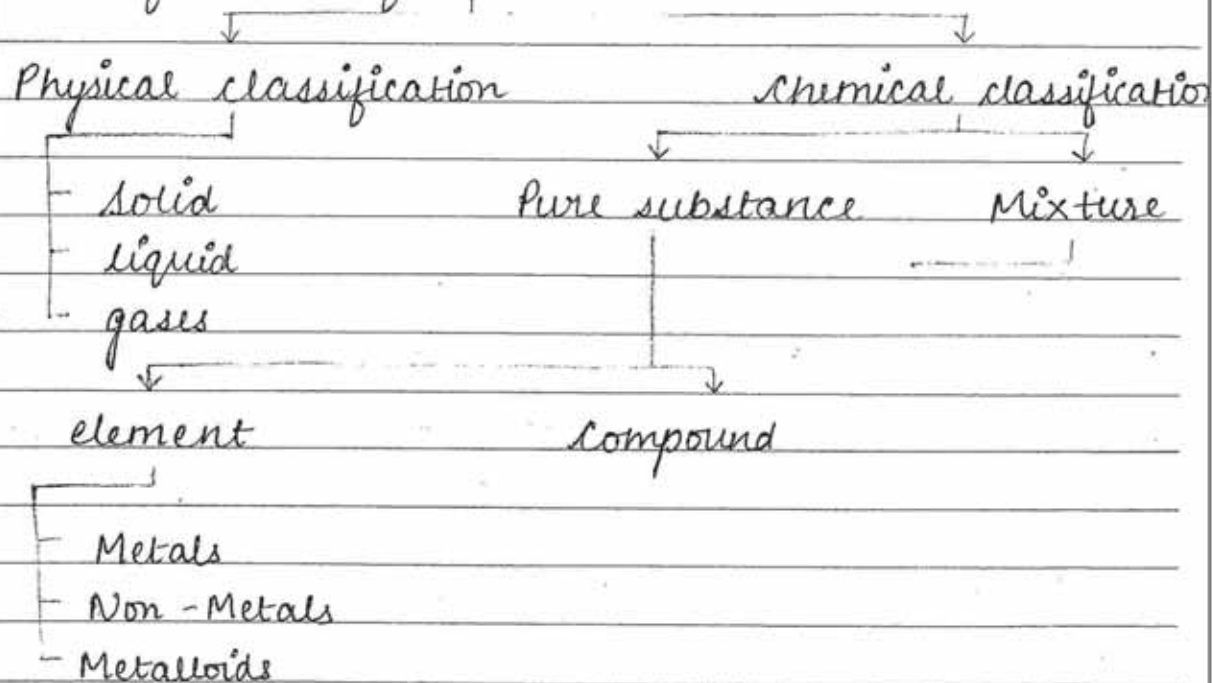 Physical classification chemical classification
Solid Pure substance Mixture
liquid
gases
element Compound
Metals
Non - Metals
Metalloids